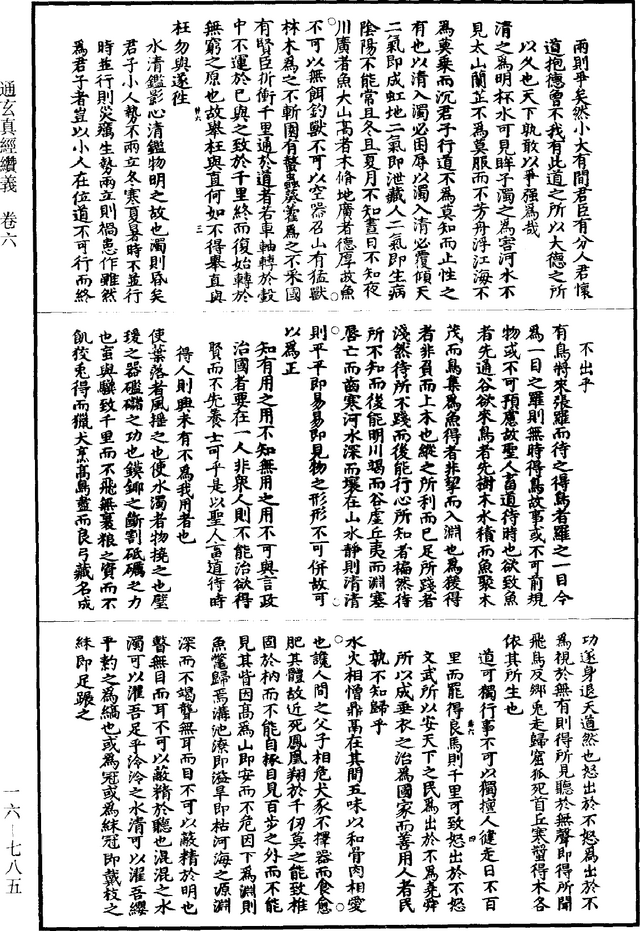 通玄真經纘義　卷六
一六—七八五
兩則爭矣然小大有間君臣有分人君懷
道抱德曾不我有此道之所以大德之所
以久也天下孰敢以爭强爲哉
清之爲明杯水可見眸子濁之爲害河水不
見太山蘭芷不爲莫服而不芳舟浮江海不
爲莫乘而沉君子行道不爲莫知而止性之
有也以清入濁必困辱以濁入清必覆傾天
二氣即成虹地二氣即泄藏人二氣即生病
陰陽不能常且冬且夏月不知晝日不知夜
川廣者魚大山高者木脩地廣者德厚故魚
不可以無餌釣獸不可以空器召山有猛獸
林木爲之不斬園有螫蟲葵藿爲之不采國
有賢臣折衝千里通於道者若車軸轉於轂
中不運於已與之致於千里終而復始轉於
無窮之原也故舉枉與直何如不得舉直與
枉勿與遂往
水清鑑影心清鑑物明之故也濁則昏矣
君子小人勢不兩立冬寒夏暑時不並行
時並行則災癘生勢兩立則禍患作雖然
爲君子者豈以小人在位道不可行而終
不出乎
有鳥將來張羅而待之得鳥者羅之一目今
爲一目之羅則無時得鳥故事或不可前規
物或不可預應故聖人畜道待時也欲致魚
者先通谷欲來鳥者先樹木水積而魚聚木
茂而鳥集爲魚得者非挈而入淵也爲猨得
者非負而上木也縱之所利而已足所踐者
淺然待所不踐而後能行心所知者褊然待
所不知而後能明川竭而谷虛丘夷而淵塞
唇亡而齒寒河水深而壤在山水靜則清清
則平平即易易即見物之形形不可併故可
以爲正
知有用之用不知無用之用不可與言政
治國者要在一人非衆人則不能治欲得
賢而不先養士可乎是以聖人畜道待時
得人則興未有不爲我用者也
使葉落者風搖之也使水濁者物撓之也璧
瑗之器礛䃴之功也鏌鋣之斷割砥礪之力
也䖟與驥致千里而不飛無裹粮之資而不
飢狡兎得而獵犬烹高鳥盡而良弓藏名成
功遂身退天道然也怒出於不怒爲出於不
爲視於無有則得所見聽於無聲即得所聞
飛鳥反鄉兎走歸窟狐死首丘寒螿得木各
依其所生也
道可獨行事不可以獨擅人徒走日不百
里而罷得良馬則千里可致怒出於不怒
文武所以安天下之民爲出於不爲堯舜
所以成垂衣之治爲國家而善用人者民
孰不知歸乎
水火相憎鼎鬲在其間五味以和骨肉相愛
也讒人間之父子相危犬豕不擇器而食愈
肥其體故近死鳳凰翔於千仞莫之能致椎
固於枘而不能自椓目見百步之外而不能
見其眥因高爲山即安而不危因下爲淵則
魚鼈歸焉溝池潦即溢旱即枯河海之源淵
深而不竭聾無耳而目不可以蔽精於明也
瞽無目而耳不可以蔽精於聽也混混之水
濁可以濯吾足乎泠泠之水清可以濯吾纓
乎䋲之爲縞也或爲冠或爲絑冠即戴枝之
絑即足蹍之